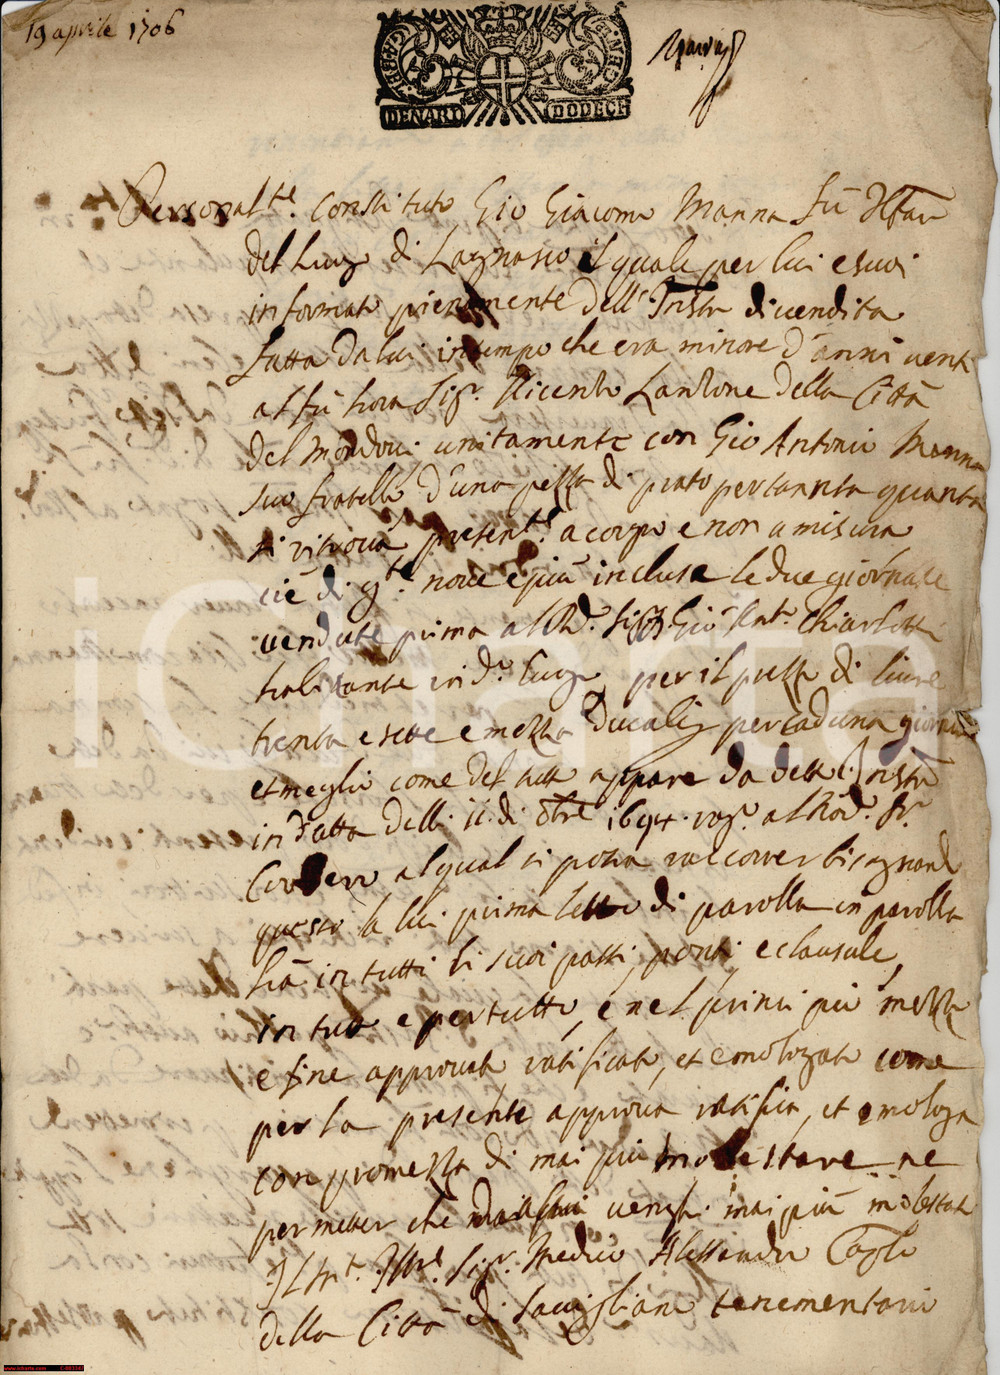 19 aprile 1706
GABEL GENER
DENARI DODECI
Personal.te Constituto Gio Giacomo Manna fù
del Luogo di Lagnasco il quale per lui e suoi
informato pienamente dell' Instr.o di vendita
fatta da lui in tempo che era minore d'anni venti
al fù hora Sig.r Vicenzo Lanzone della Città
del Mondovi unitamente con Gio Antonio Manna
suo fratello d'una pezza di prato per tanta quanta
si ritrova present.te a corpo e non a misura
cie di g.te nove e più incluse le due giornate
vendute prima al Sig.r Gio Ant.o Chiarlotti
habitante in d.o luogo per il prezzo di livre
trenta e sette e mezza Ducali per caduna giornata
et meglio come del tutto appare da detto Instr.o
in d.a fatta delli 11 di 8bre 1694 rog.o al Nod.o Sr.
Cordero al qual si potrà raccorrer bisognando
questo a lui prima letto di parolla in parolla
hà in tutti li suoi patti, ponti, e clausule,
in tutto e per tutto, e nel princi pio mezzo
e fine approvato, ratificato, et emologato come
per la presente approva ratifica, et emologa
con promezza di mai più molestare ne
permetter che venghi mai più molestato
Il M.to Ill.re Sig.r Medico Alessandro
della Città di Savigliano tenementario
iCharta
www.icharta.com